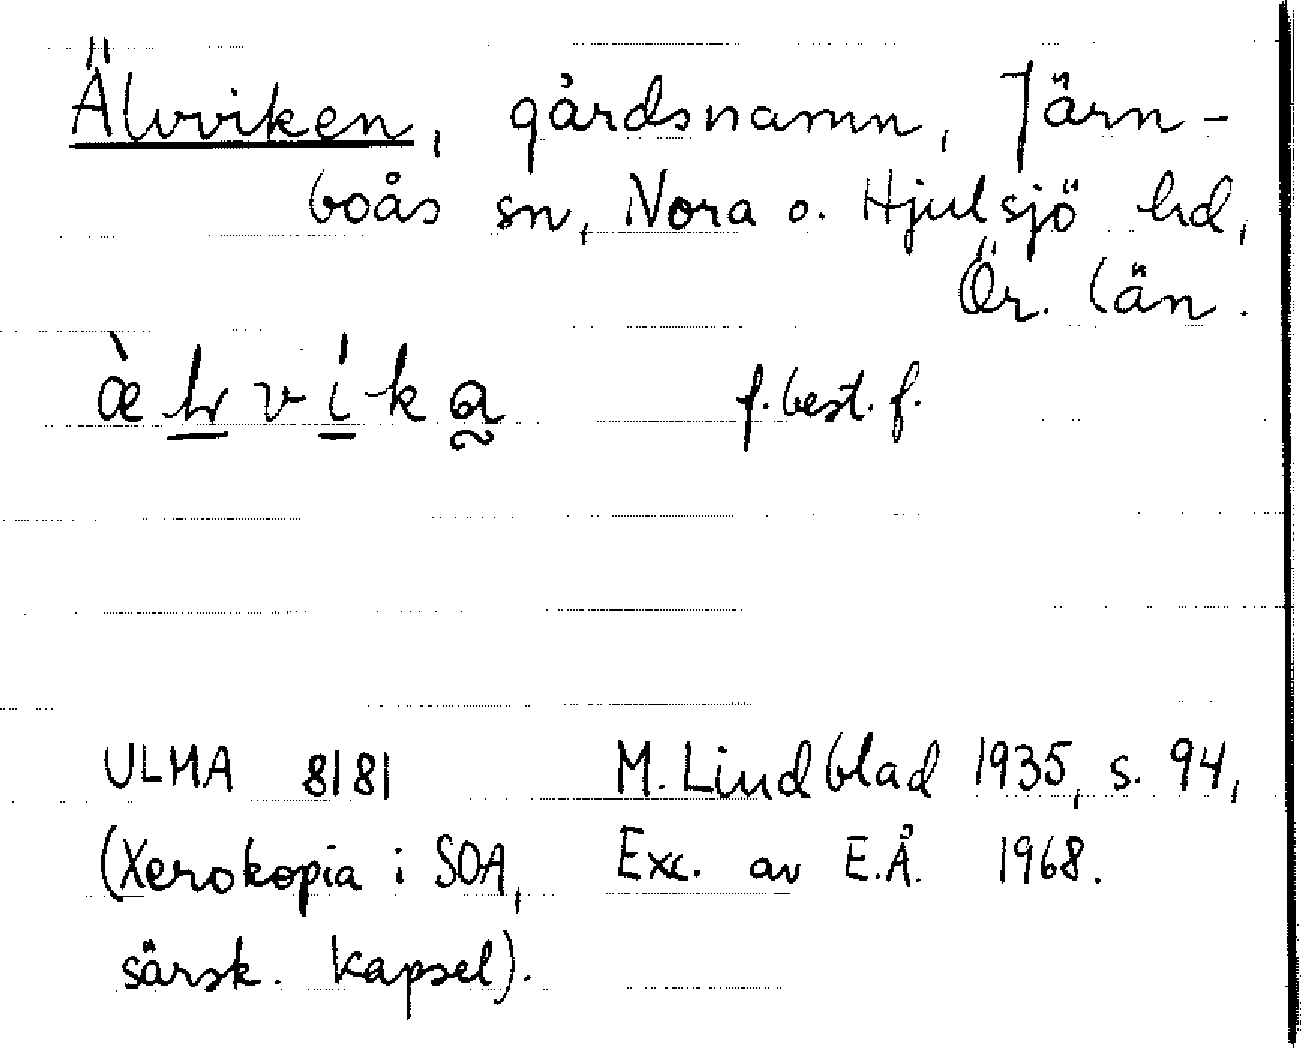 Älvviken, gårdsnamn, Järn-
boås sn, Nora o. Hjulsjö hd,
Ör. län.
f. best. f.
ULMA 8181 M. Lindblad 1935, s. 94,
(Xerokopia i SOA, Exc. av E.Å. 1968.
särsk. kapsel).